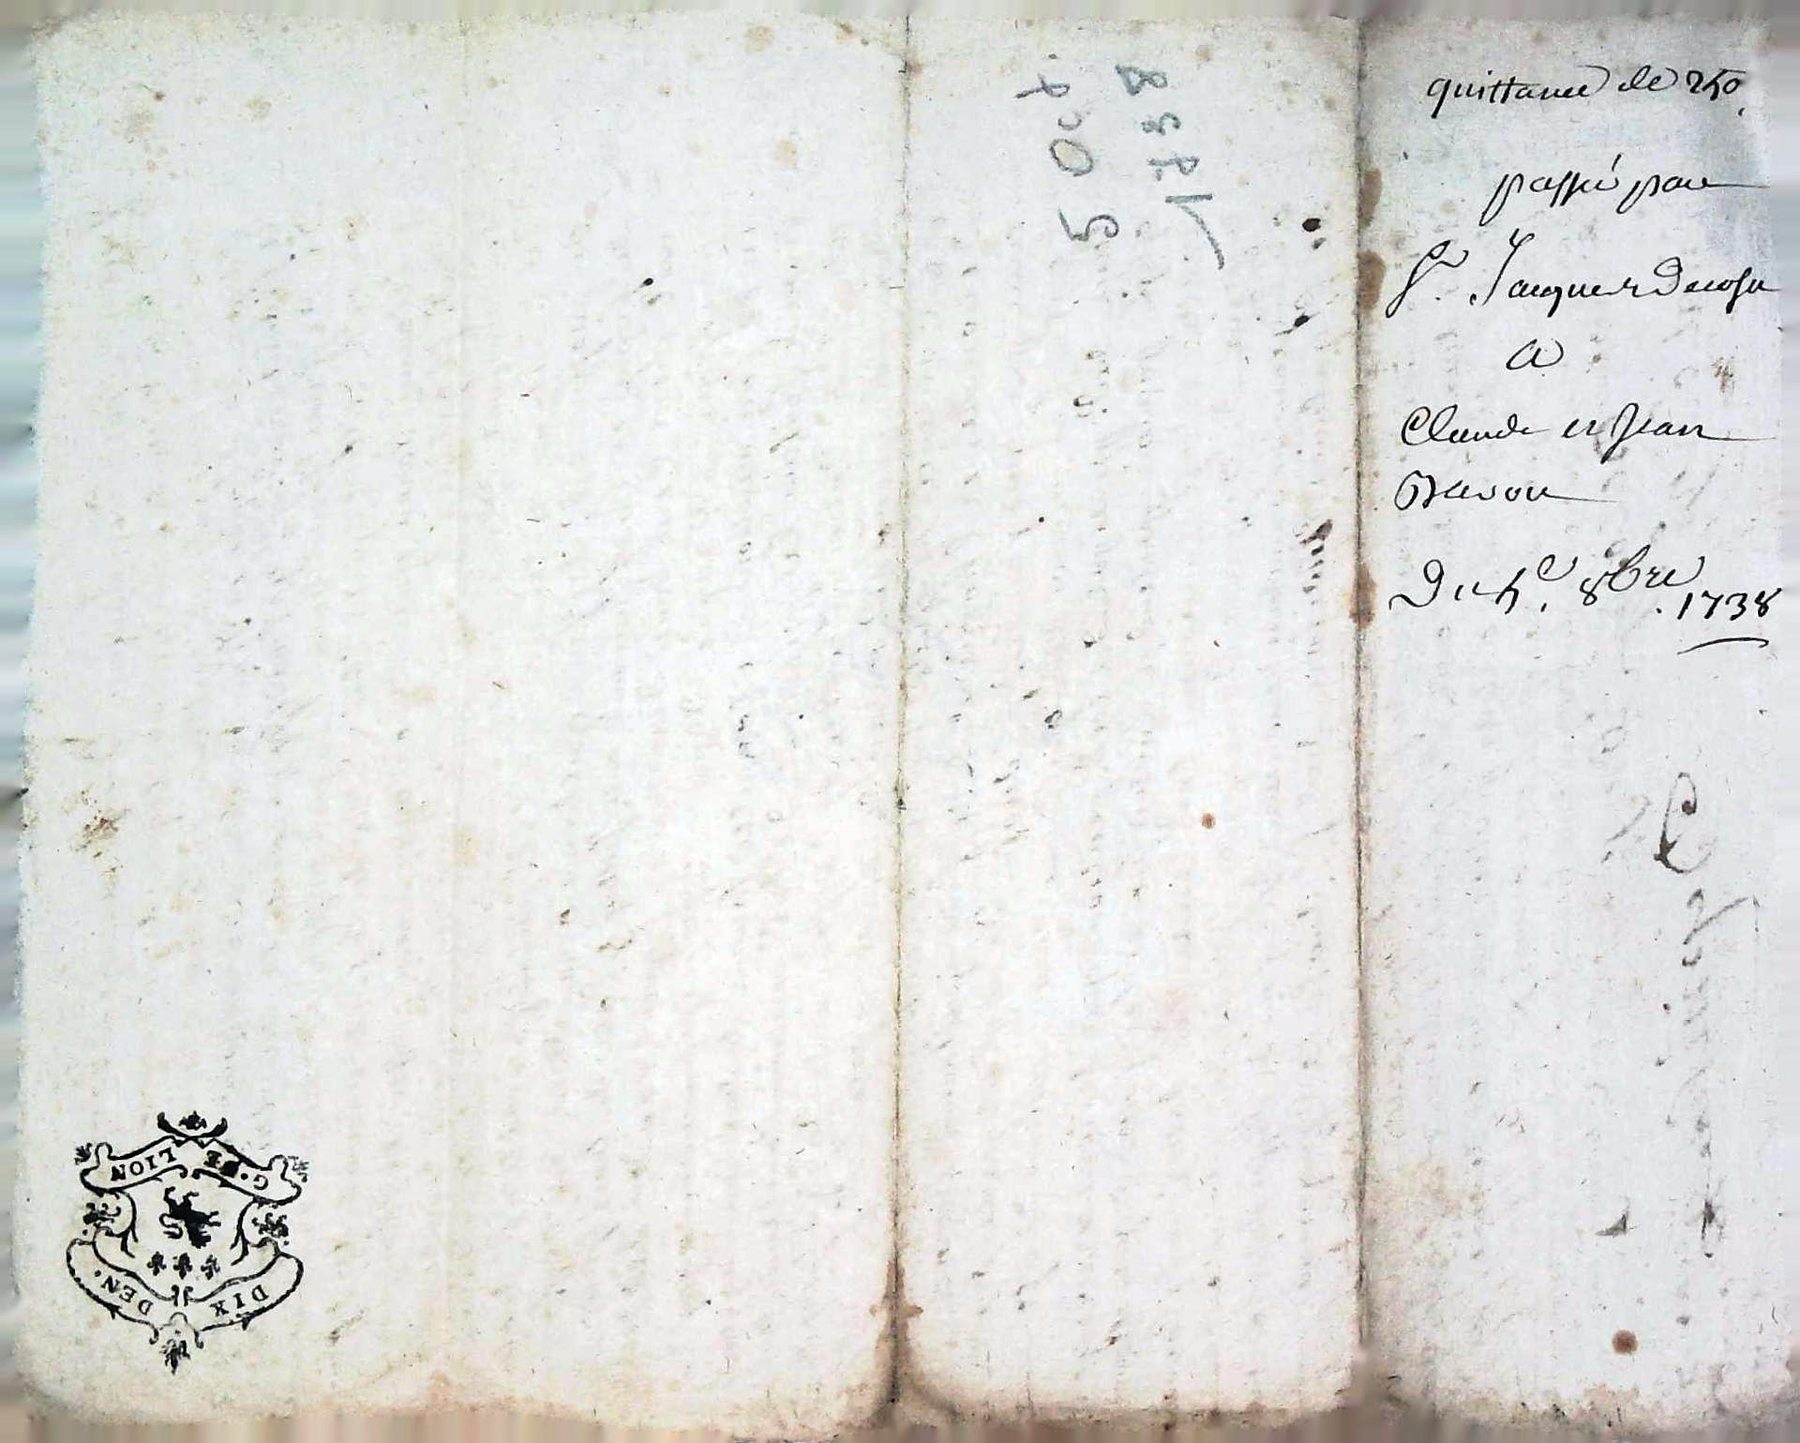 quittance de 250
passé par
Sr. Jacques Decosse
a
Claude et Jean
Du 5e. 8bre. 1738
1738
G. DE LION
DIX DEN.